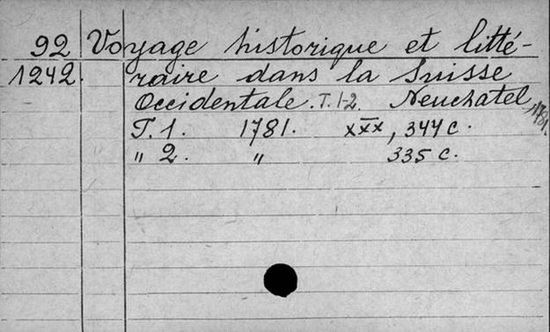 92 Voyage historique et litté-
1242. raire dans la Suisse
Occidentale. T. 1-2. Neuchatel, 1781.
T. 1. 1781. xxx, 344 c.
" 2. " 335 c.